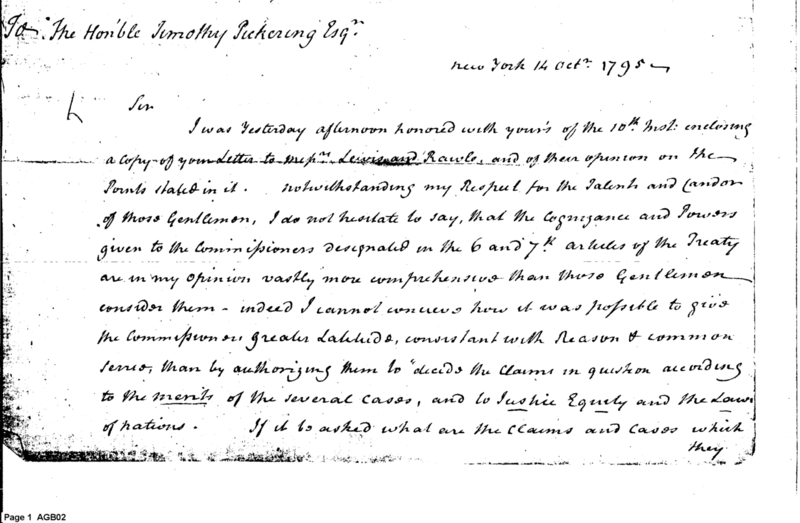 To: The Honble Timothy Pickering Esqr.
new York 14 Octr. 1795
Sir
I was Yesterday afternoon honored with your's of the 10th. Inst: enclosing
a copy of your Letter to messrs. Lewis and Rawle, and of their opinion on the
Points stated in it. notwithstanding my Respect for the Talents and Candor
of those Gentlemen, I do not hesitate to say, that the Cognizance and Powers
given to the Commissioners designated in the 6 and 7th articles of the Treaty
are in my opinion vastly more comprehensive than those Gentlemen
consider them - indeed I cannot concieve how it was possible to give
the Commissioners greater Latitude, consistant with Reason & common
Sense, than by authorizing them to "decide the Claims in question according
to the merits of the several cases, and to Justice Equity and the Laws
of nations. If it be asked what are the Claims and Cases which
they
Page 1 AGB02